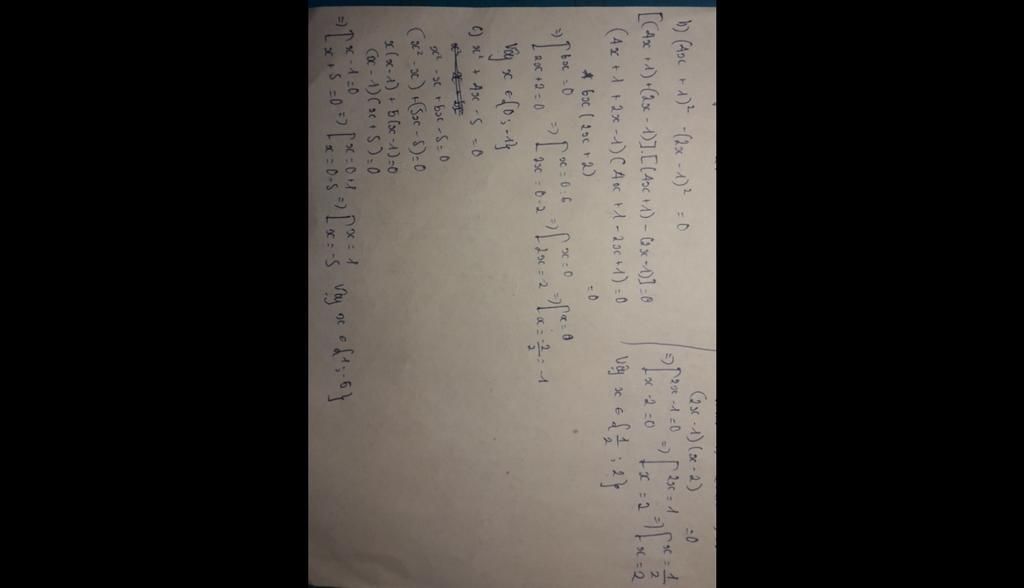 b) (4x + 1)² - (2x - 1)² = 0
[(4x + 1) + (2x - 1)].[(4x + 1) - (2x - 1)] = 0
(4x + 1 + 2x - 1)(4x + 1 - 2x + 1) = 0
6x(2x + 2) = 0
=> [6x = 0 => [x = 0:6 => [x = 0 => [x = 0
[2x + 2 = 0 [2x = 0 - 2 [2x = -2 [x = -2/2 = -1
Vậy x ∈ {0; -1}
c) x² + 4x - 5 = 0
x² - x + 5x - 5 = 0
(x² - x) + (5x - 5) = 0
x(x - 1) + 5(x - 1) = 0
(x - 1)(x + 5) = 0
=> [x - 1 = 0 => [x = 0 + 1 => [x = 1
[x + 5 = 0 [x = 0 - 5 [x = -5 Vậy x ∈ {1; -5}
(2x - 1)(x - 2) = 0
=> [2x - 1 = 0 => [2x = 1 => [x = 1/2
[x - 2 = 0 [x = 2 [x = 2
Vậy x ∈ {1/2; 2}